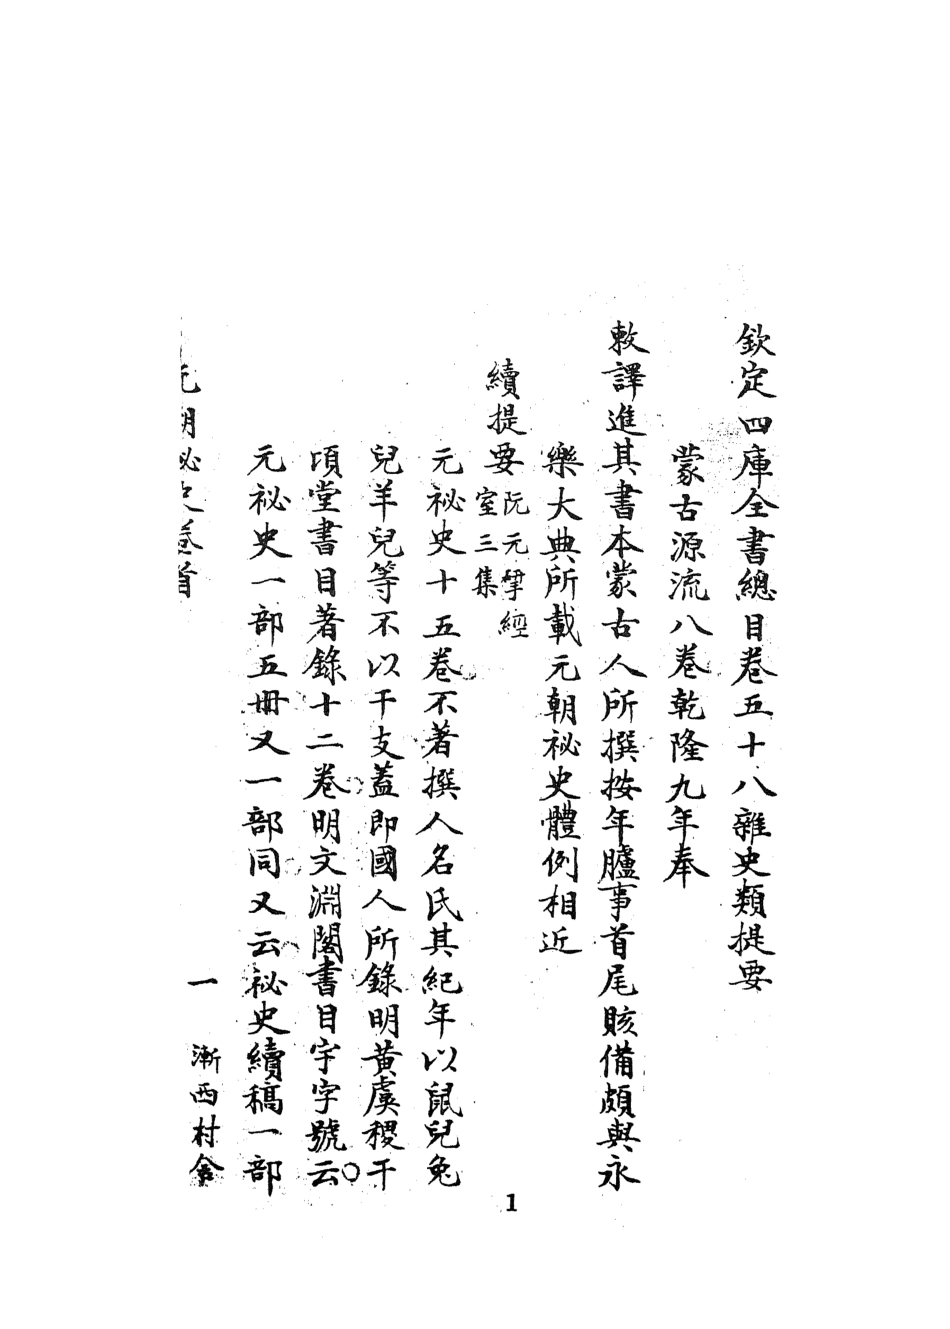 欽定四庫全書總目卷五十八雜史類提要
蒙古源流八卷乾隆九年奉
敕譯進其書本蒙古人所撰按年臚事首尾賅備頗與永
樂大典所載元朝祕史體例相近
續提要阮元揅經室三集
元祕史十五卷不著撰人名氏其紀年以鼠兒兔
兒羊兒等不以干支蓋即國人所錄明黃虞稷千
頃堂書目著錄十二卷明文淵閣書目宇字號云
元祕史一部五冊又一部同又云祕史續稿一部
元朝祕史卷首
一
漸西村舍
1